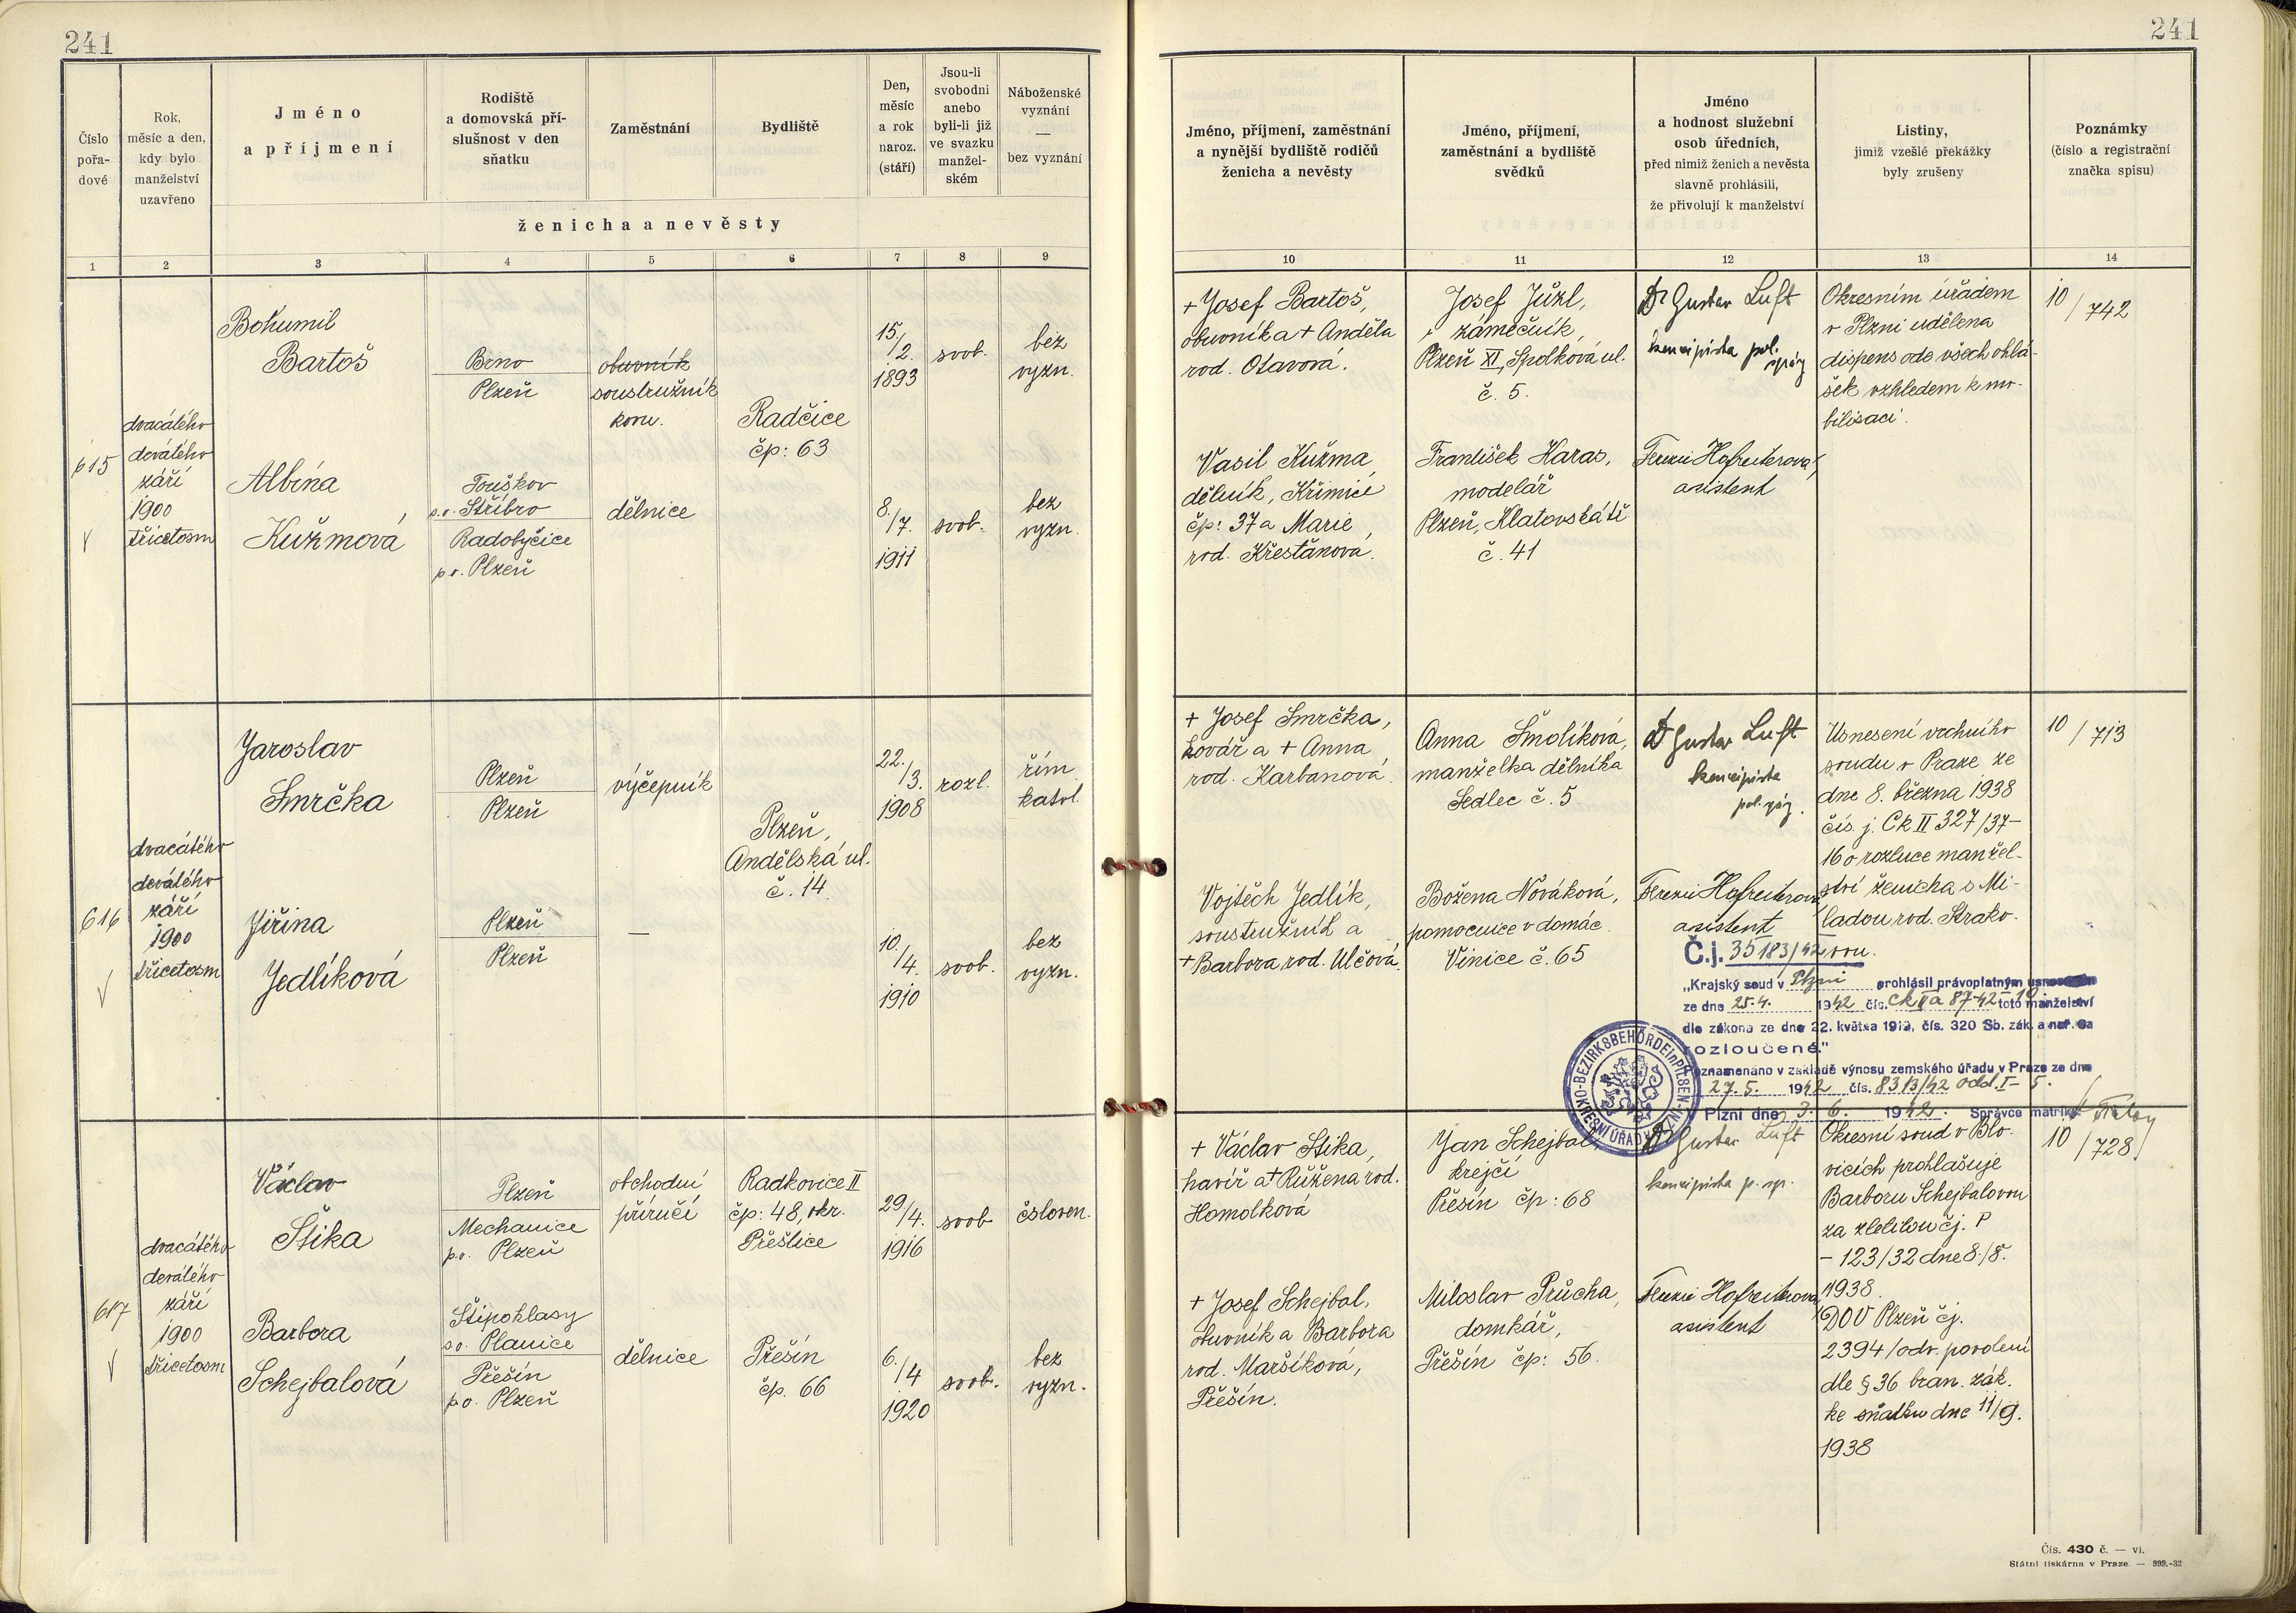 241
241
Číslo
pořa-
dové
Rok,
měsíc a den,
kdy bylo
manželství
uzavřeno
Jméno
a příjmení
Rodiště
a domovská pří-
slušnost v den
sňatku
Zaměstnání
Bydliště
Den,
měsíc
a rok
naroz.
(stáří)
Jsou-li
svobodni
anebo
byli-li již
ve svazku
manžel-
ském
Náboženské
vyznání
—
bez vyznání
ženicha a nevěsty
Jméno, příjmení, zaměstnání
a nynější bydliště rodičů
ženicha a nevěsty
Jméno, příjmení,
zaměstnání a bydliště
svědků
Jméno
a hodnost služební
osob úředních,
před nimiž ženich a nevěsta
slavně prohlásili,
že přivolují k manželství
Listiny,
jimiž vzešlé překážky
byly zrušeny
Poznámky
(číslo a registrační
značka spisu)
1 2 3 4 5 6 7 8 9 10 11 12 13 14
615
dvacátého
devátého
září
1900
třicetosm
Bohumil
Bartoš
Brno
Plzeň
obuvník
soustružník
kovu.
Radčice
čp: 63
15./2.
1893
svob.
bez
vyzn.
Albína
Kužmová
Touškov
s.o. Stříbro
Radobyčice
p.o. Plzeň
dělnice
8./7.
1911
svob.
bez
vyzn.
+ Josef Bartoš,
obuvník a + Anděla
rod. Otavová.
Josef Jůzl,
zámečník,
Plzeň XI, Spolková ul.
č. 5.
Dr Gustav Luft
koncipista pol.
správy
Okresním úřadem
v Plzni udělena
dispens ode všech ohlá-
šek vzhledem k mo-
bilisaci.
10/742
Vasil Kužma,
dělník, Křimice
čp: 37 a Marie
rod. Křesťanová.
František Haras,
modelář
Plzeň, Klatovská tř
č. 41
asistent
616
dvacátého
devátého
září
1900
třicetosm
Jaroslav
Smrčka
Plzeň
Plzeň
výčepník
Plzeň,
Andělská ul.
č. 14.
22./3.
1908
rozl.
řím.
katol.
Jiřina
Jedlíková
Plzeň
Plzeň
—
10./4.
1910
svob.
bez
vyzn.
+ Josef Smrčka,
kovář a + Anna
rod. Karbanová.
Anna Šmolíková,
manželka dělníka
Sedlec č. 5
Dr Gustav Luft
koncipista
pol. správy.
Usnesení vrchního
soudu v Praze ze
dne 8. března 1938
čís. j. Ck II 327/37-
16 o rozluce manžel-
ství ženicha s Mi-
ladou rod. Strako-
vou.
10/713
Vojtěch Jedlík,
soustružník a
+ Barbora rod. Ulčová.
Božena Nováková,
pomocnice v domác.
Vinice č. 65
asistent
Č.j. 35183/42
„Krajský soud v Plzni prohlásil právoplatným
ze dne 25.4. 1942 čís. Ck IIa 87-42-10 toto manželství
dle zákona ze dne 22. května 1919, čís. 320 Sb. zák. a nař. za
rozloučené."
Poznamenáno v základě výnosu zemského úřadu v Praze ze dne
27.5. 1942 čís. 8313/42 odd. I-5.
V Plzni dne 3. 6. 1942. Správce matriky
BEZIRKSBEHÖRDE in PILSEN
OKRESNÍ ÚŘAD V PLZNI
617
dvacátého
devátého
září
1900
třicetosm
Václav
Štika
Plzeň
Mechanice
p.o. Plzeň
obchodní
příručí
Radkovice II
čp: 48, okr.
Přeštice
29/4.
1916
svob
čsloven.
Barbora
Schejbalová
Štipoklasy
s.o. Planice
Přešín
p.o. Plzeň
dělnice
Přešín
čp. 66
6./4
1920
svob.
bez
vyzn.
+ Václav Štika,
havíř a + Růžena rod.
Homolková
Jan Schejbal,
krejčí
Přešín čp: 68
Dr Gustav Luft
koncipista p. sp.
Okresní soud v Blo-
vicích prohlašuje
Barboru Schejbalovou
za zletilou čj. P
- 123/32 dne 8./8.
1938.
DOV Plzeň čj.
2394/odv. povolení
dle § 36 bran. zák.
ke sňatku dne 11/9.
1938
10/728
+ Josef Schejbal,
obuvník a Barbora
rod. Maršíková,
Přešín.
Miloslav Průcha,
domkář,
Přešín čp: 56.
asistent
Čís. 430 č. — vi.
Státní tiskárna v Praze. — 999.-32